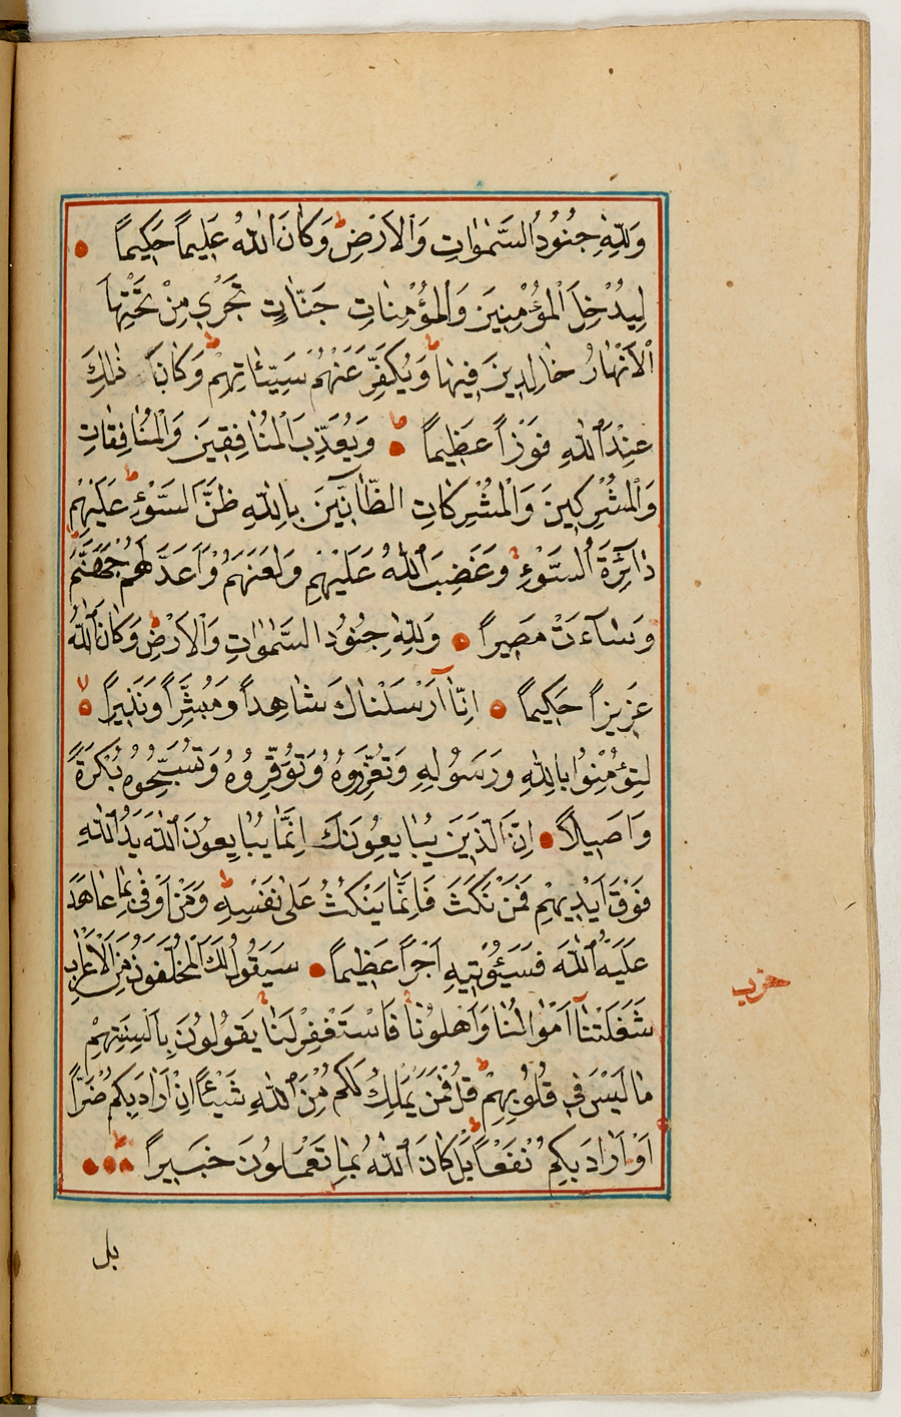 وَلِلّٰهِ جُنُودُ السَّمٰوَاتِ وَالْاَرْضِ ط وَكَانَ اللّٰهُ عَلِيمًا حَكِيمًا
لِيُدْخِلَ الْمُؤْمِنِينَ وَالْمُؤْمِنَاتِ جَنَّاتٍ تَجْرِي مِنْ تَحْتِهَا
الْاَنْهَارُ خَالِدِينَ فِيهَا ط وَيُكَفِّرَ عَنْهُمْ سَيِّئَاتِهِمْ ط وَكَانَ ذٰلِكَ
عِنْدَ اللّٰهِ فَوْزًا عَظِيمًا وَيُعَذِّبَ الْمُنَافِقِينَ وَالْمُنَافِقَاتِ
وَالْمُشْرِكِينَ وَالْمُشْرِكَاتِ الظَّانِّينَ بِاللّٰهِ ظَنَّ السَّوْءِ ط عَلَيْهِمْ
دَائِرَةُ السَّوْءِ وَغَضِبَ اللّٰهُ عَلَيْهِمْ وَلَعَنَهُمْ وَاَعَدَّ لَهُمْ جَهَنَّمَ ط
وَسَآءَتْ مَصِيرًا وَلِلّٰهِ جُنُودُ السَّمٰوَاتِ وَالْاَرْضِ ط وَكَانَ اللّٰهُ
عَزِيزًا حَكِيمًا اِنَّآ اَرْسَلْنَاكَ شَاهِدًا وَمُبَشِّرًا وَنَذِيرًا لا
لِتُؤْمِنُوا بِاللّٰهِ وَرَسُولِهِ وَتُعَزِّرُوهُ وَتُوَقِّرُوهُ وَتُسَبِّحُوهُ بُكْرَةً
وَاَصِيلًا اِنَّ الَّذِينَ يُبَايِعُونَكَ اِنَّمَا يُبَايِعُونَ اللّٰهَ يَدُ اللّٰهِ
فَوْقَ اَيْدِيهِمْ فَمَنْ نَكَثَ فَاِنَّمَا يَنْكُثُ عَلٰى نَفْسِهِ ط وَمَنْ اَوْفٰى بِمَا عَاهَدَ
عَلَيْهُ اللّٰهَ فَسَيُؤْتِيهِ اَجْرًا عَظِيمًا سَيَقُولُ لَكَ الْمُخَلَّفُونَ مِنَ الْاَعْرَابِ
شَغَلَتْنَآ اَمْوَالُنَا وَاَهْلُونَا فَاسْتَغْفِرْ لَنَا يَقُولُونَ بِاَلْسِنَتِهِمْ
مَا لَيْسَ فِي قُلُوبِهِمْ ط قُلْ فَمَنْ يَمْلِكُ لَكُمْ مِنَ اللّٰهِ شَيْئًا اِنْ اَرَادَ بِكُمْ ضَرًّا
اَوْ اَرَادَ بِكُمْ نَفْعًا ط بَلْ كَانَ اللّٰهُ بِمَا تَعْمَلُونَ خَبِيرًا
حزب
بل